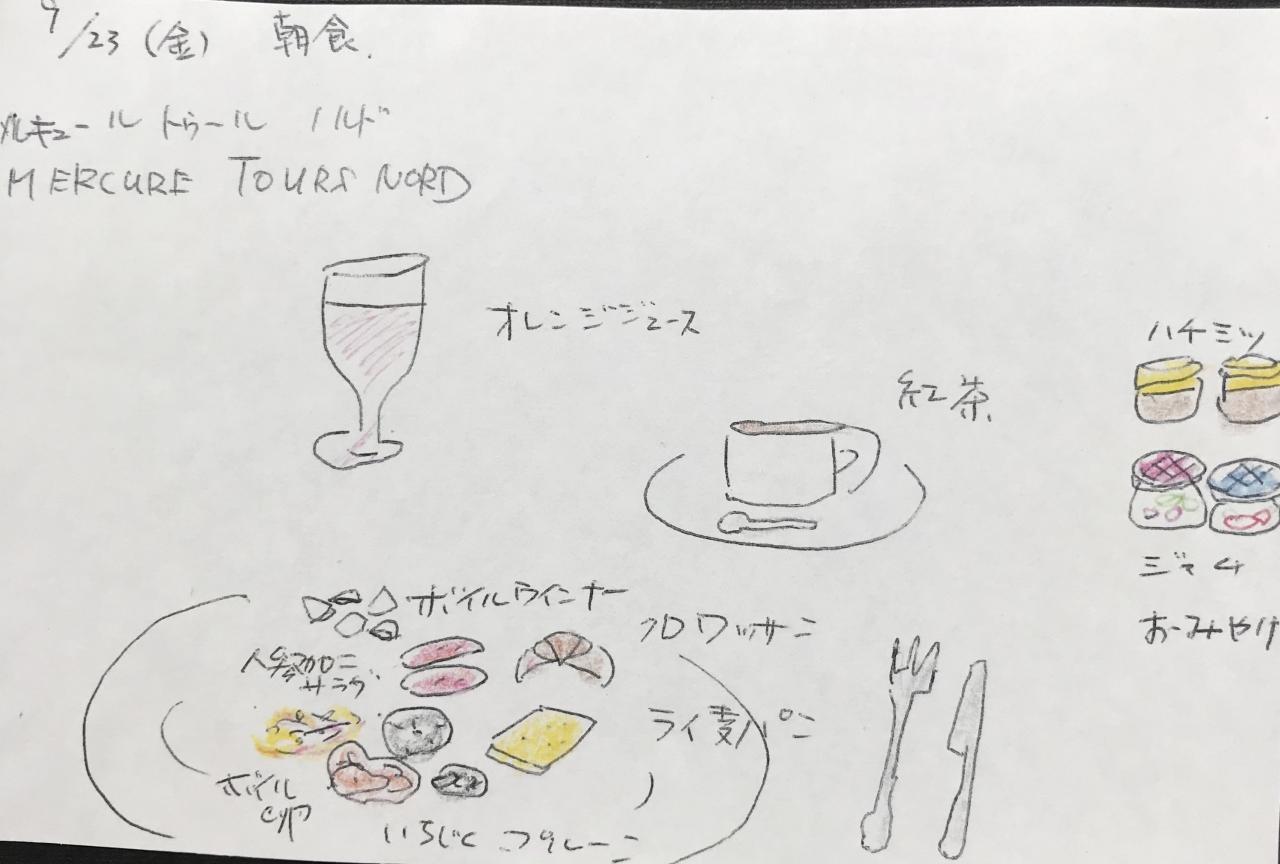 9/23（金） 朝食.
メルキュール トゥール ノルド
MERCURE TOURS NORD
オレンジジュース
紅茶
ハチミツ
ジャム
おーみやげ
ボイルウインナー
クロワッサン
人参マカロニ
サラダ
ライ麦パン
ボイル
いちじく プルーン